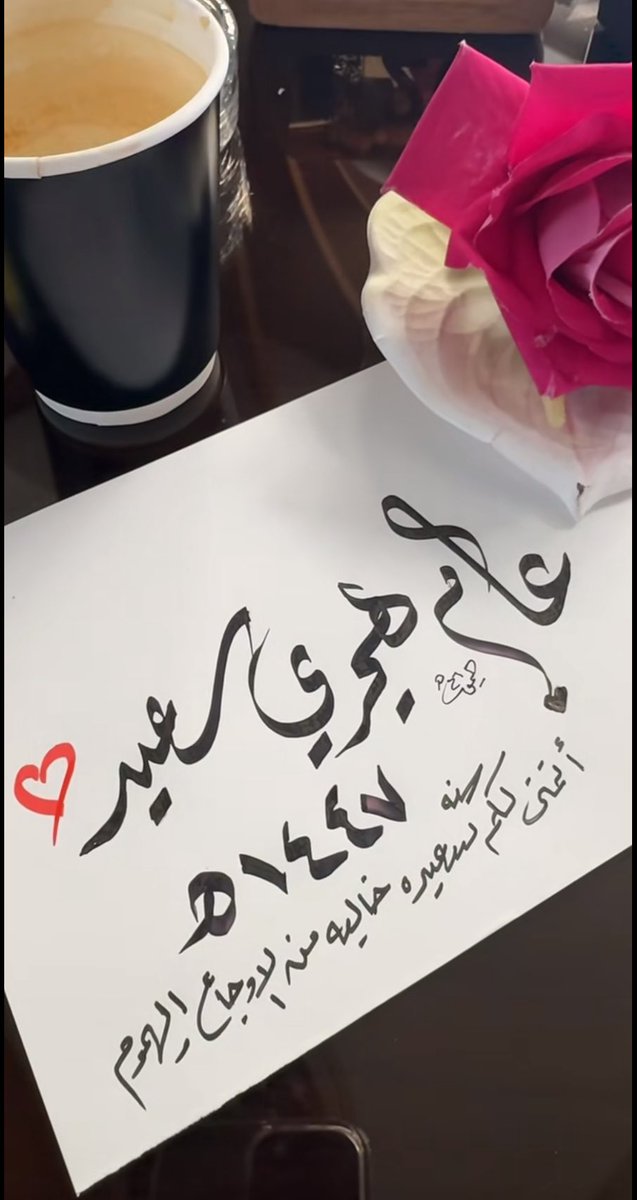 عام هجري سعيد
١٤٤٧ه
أتمنى لكم سنه سعيده خاليه من الاوجاع والهموم